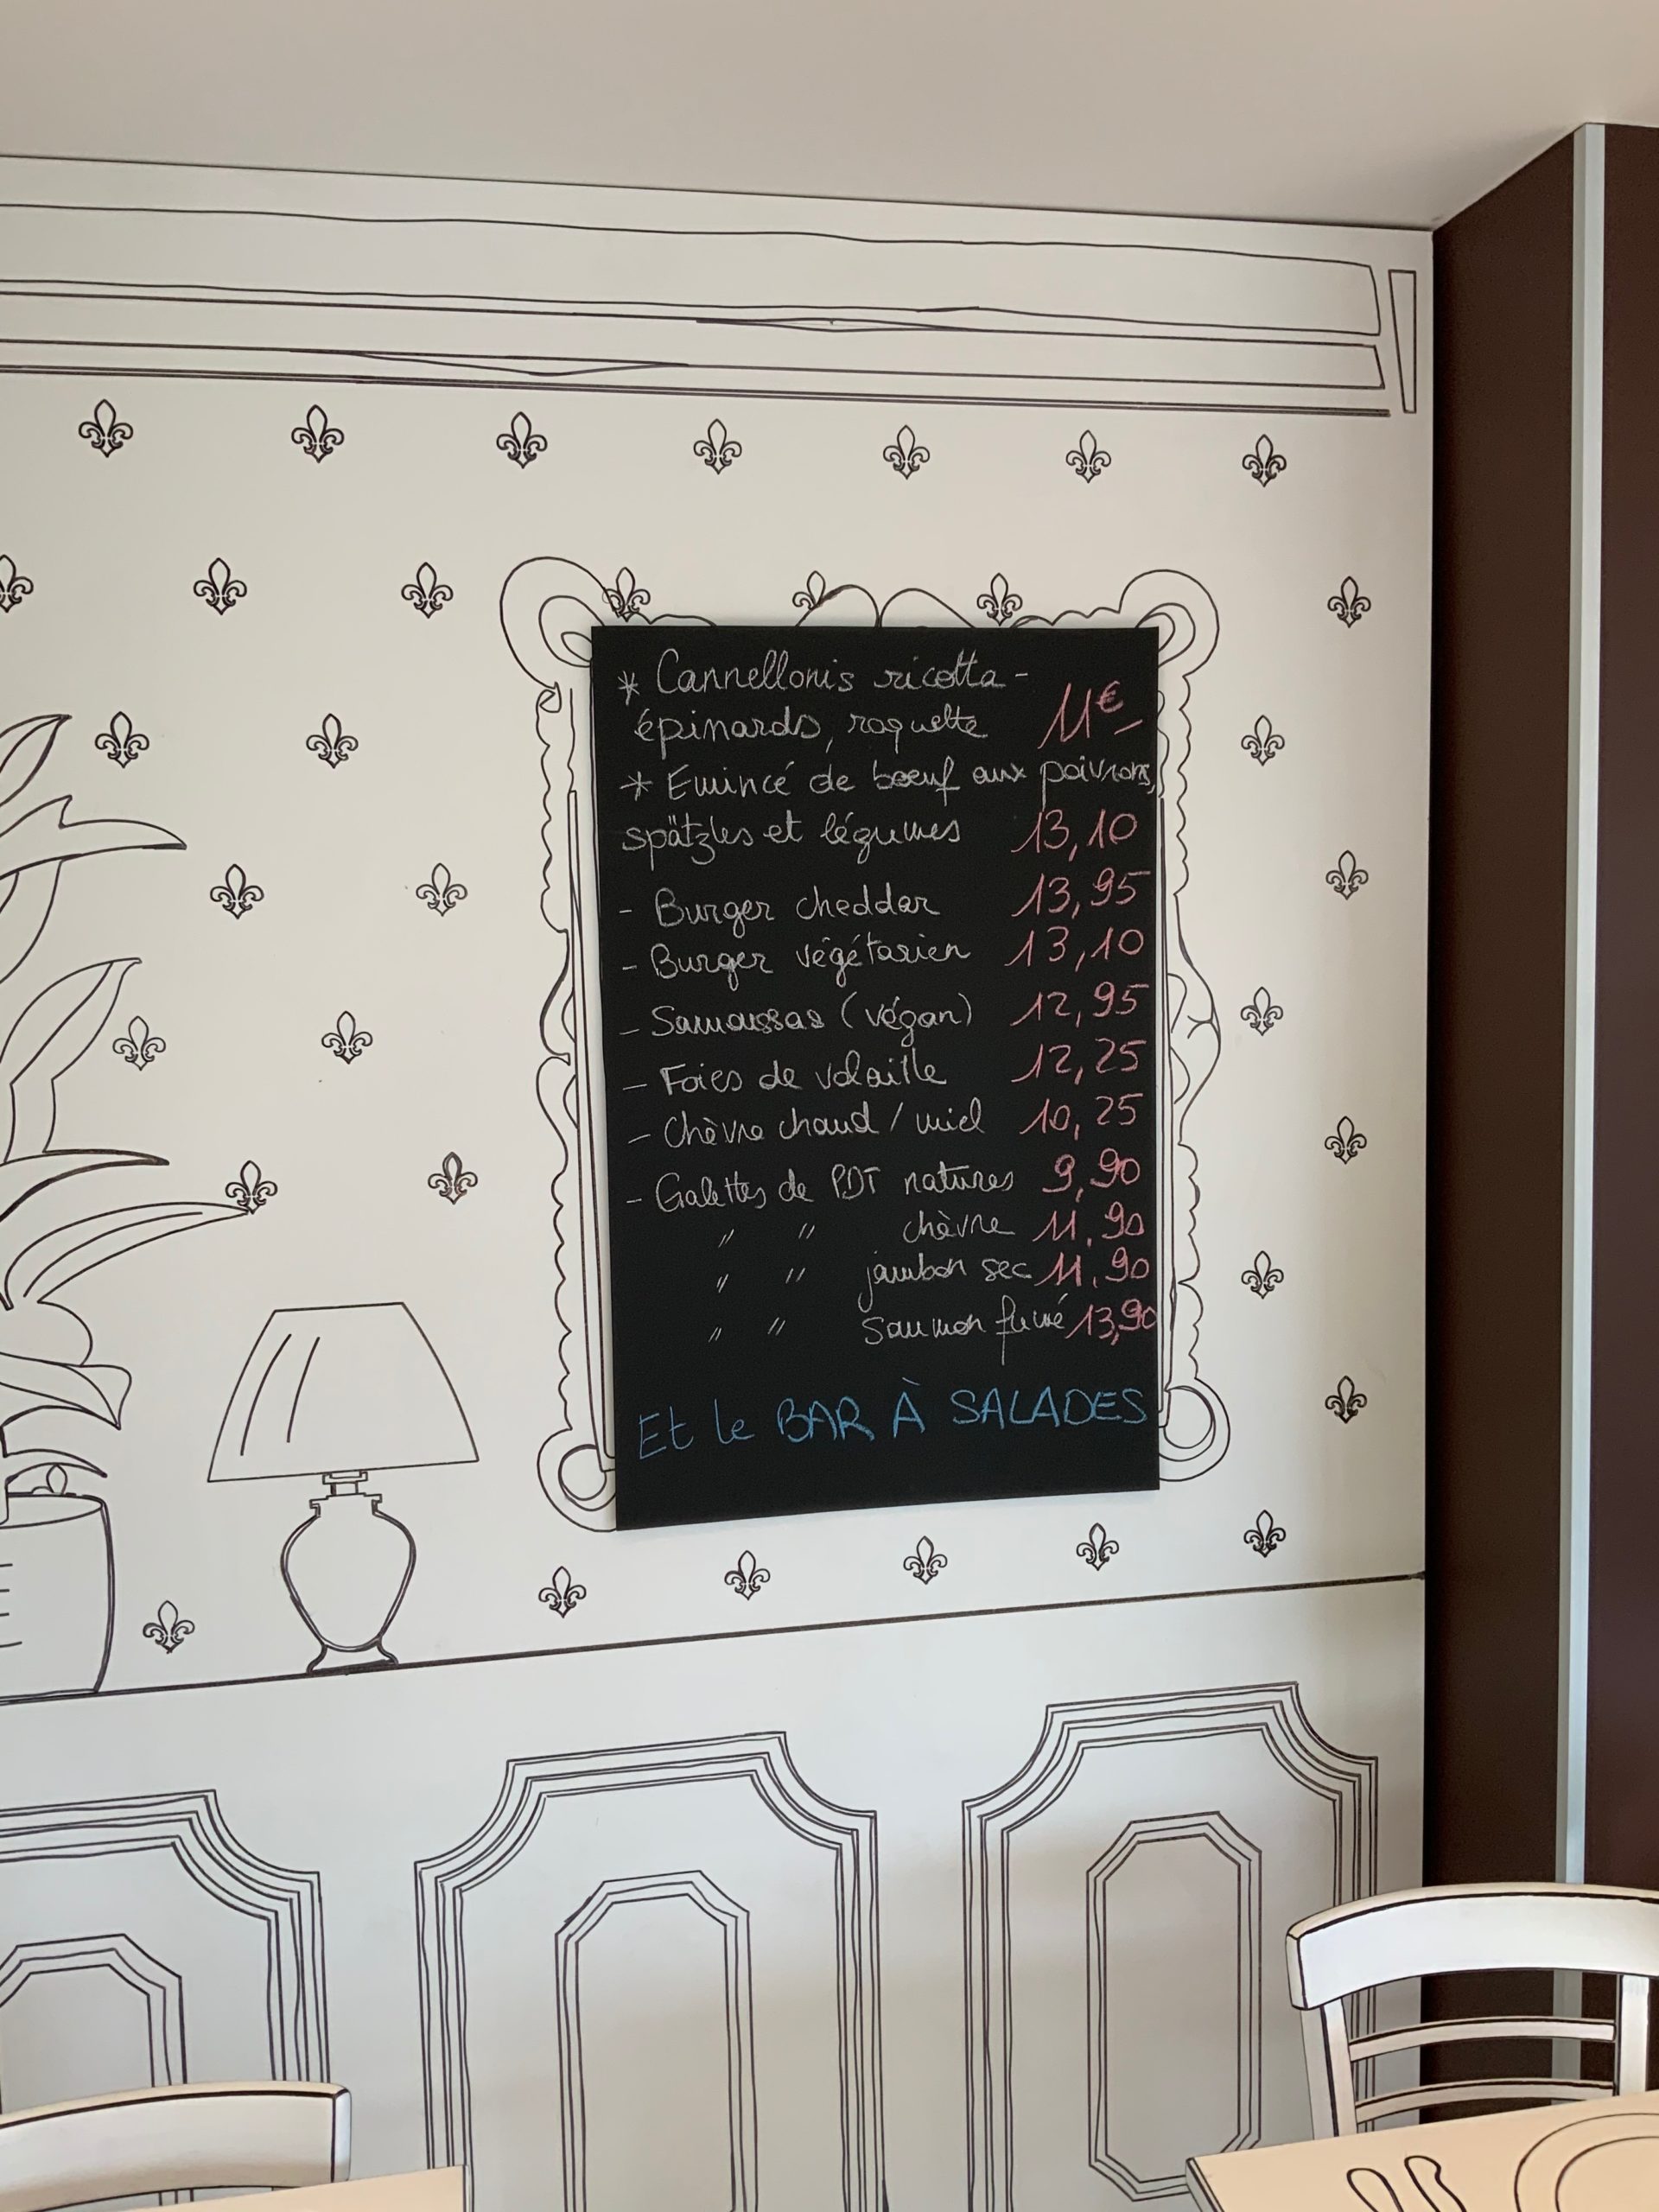 * Cannellonis ricotta -
épinards, roquette 11€-
* Emincé de boeuf aux poivrons,
spätzles et légumes 13,10
- Burger cheddar 13,95
- Burger végétarien 13,10
- Samoussas (végan) 12,95
- Foies de volaille 12,25
- Chèvre chaud / miel 10,25
- Galettes de PDT natures 9,90
" " chèvre 11,90
" " jambon sec 11,90
" " saumon fumé 13,90
Et le BAR À SALADES